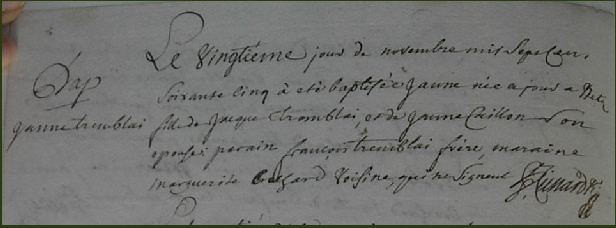 Le Vingtième jour de novembre mis Sept Cen.
Bap
janne tremblai
Soixante Cinq à été baptisée janne née a jour a
fille de jacque tromblai, et de janne Caillon Son
epouse: parain françois tremblai frère, maraine
marguerite Voisine, qui ne Signent